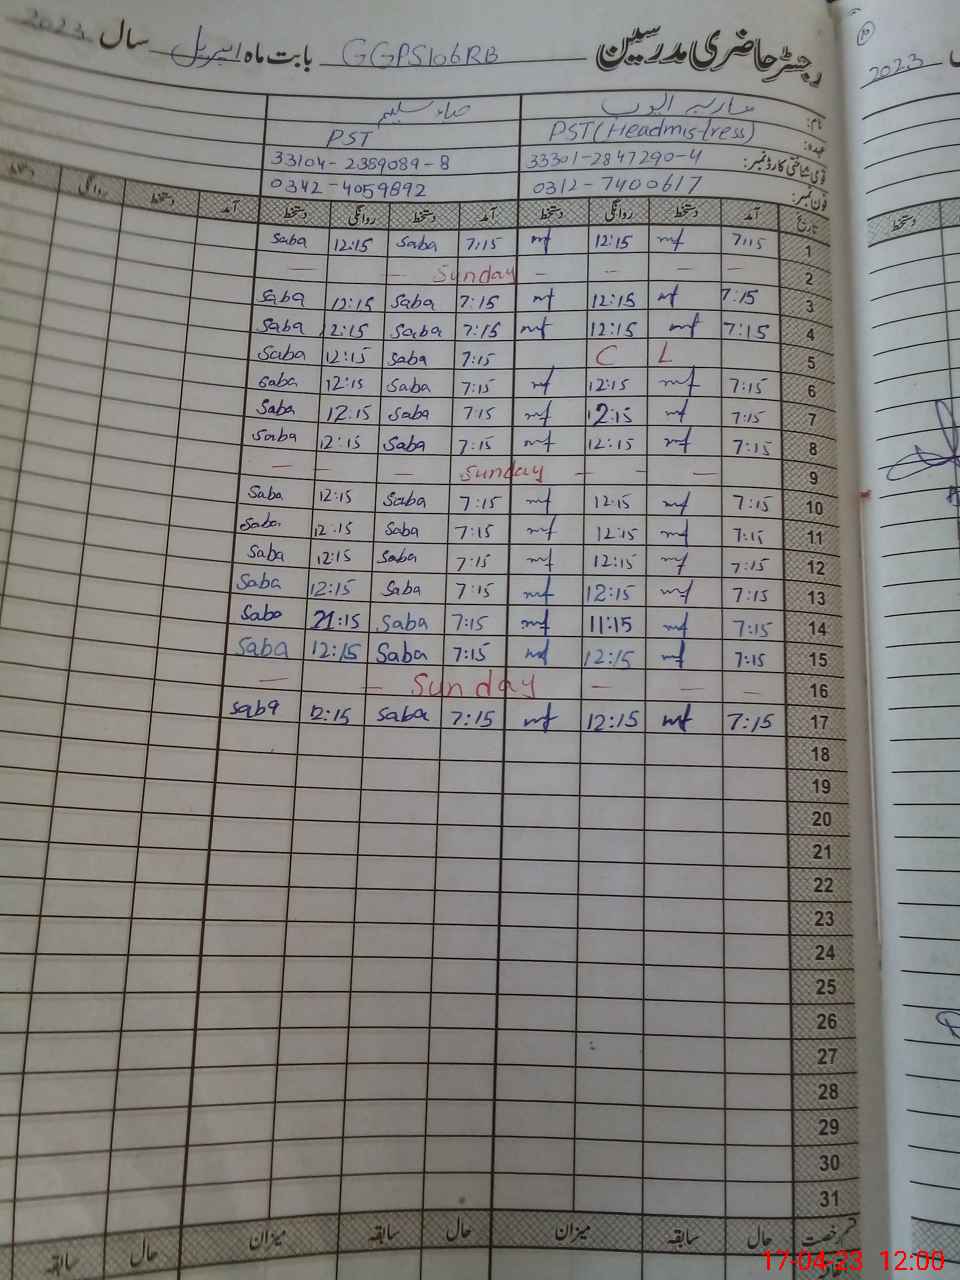 رجسٹر حاضری مدرسین GGPS106RB بابت ماہ اپریل سال 2023
2023
نام: ماریہ ایوب صباء سلیم
عہدہ: PST (Headmistress) PST
قومی شناختی کارڈ نمبر: 33301-2847290-4 33104-2389089-8
فون نمبر: 0312-7400617 0342-4059892
تاریخ آمد دستخط روانگی دستخط آمد دستخط روانگی دستخط آمد دستخط روانگی دستخط
1 7:15 mf 12:15 mf 7:15 Saba 12:15 Saba
2 — — -- — Sunday — —
3 7:15 mf 12:15 mf 7:15 Saba 12:15 Saba
4 7:15 mf 12:15 mf 7:15 Saba 12:15 Saba
5 L C 7:15 Saba 12:15 Saba
6 7:15 mf 12:15 mf 7:15 Saba 12:15 Saba
7 7:15 mf 12:15 mf 7:15 Saba 12:15 Saba
8 7:15 mf 12:15 mf 7:15 Saba 12:15 Saba
9 — - — Sunday — — —
10 7:15 mf 12:15 mf 7:15 Saba 12:15 Saba
11 7:15 mf 12:15 mf 7:15 Saba 12:15 Saba
12 7:15 mf 12:15 mf 7:15 Saba 12:15 Saba
13 7:15 mf 12:15 mf 7:15 Saba 12:15 Saba
14 7:15 mf 11:15 mf 7:15 Saba 21:15 Saba
15 7:15 mf 12:15 mf 7:15 Saba 12:15 Saba
16 — — — Sunday — —
17 7:15 mf 12:15 mf 7:15 Saba 12:15 Saba
18
19
20
21
22
23
24
25
26
27
28
29
30
31
رخصت حال سابقہ میزان حال سابقہ میزان حال سابقہ
17-04-23 12:00